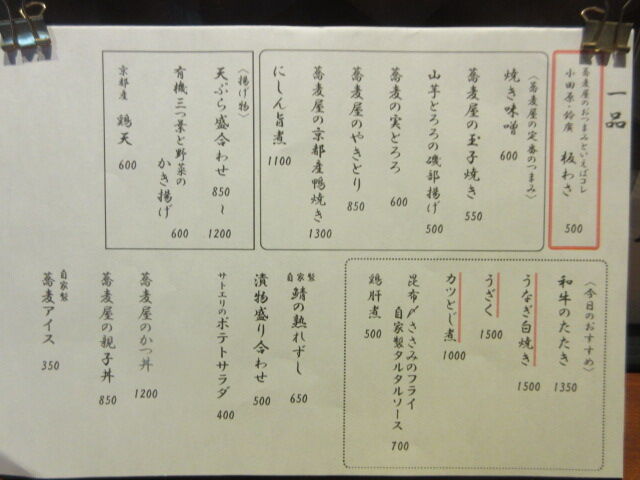 一品
蕎麦屋のおつまみといえばコレ
小田原・鈴廣 板わさ 500
〈蕎麦屋の定番のつまみ〉
焼き味噌 600
蕎麦屋の玉子焼き 550
山芋とろろの磯部揚げ 500
蕎麦の実とろろ 600
蕎麦屋のやきとり 850
蕎麦屋の京都産鴨焼き 1300
にしん旨煮 1100
〈揚げ物〉
天ぷら盛合わせ 850〜1200
有機三つ葉と野菜の
かき揚げ 600
京都産 鶏天 600
〈今日のおすすめ〉
和牛のたたき 1350
うなぎ白焼き 1500
うざく 1500
カツとじ煮 1000
昆布〆ささみのフライ
自家製タルタルソース 700
鶏肝煮 500
自家製 鯖の熟れずし 650
漬物盛り合わせ 500
サトエリのポテトサラダ 400
蕎麦屋のかつ丼 1200
蕎麦屋の親子丼 850
自家製
蕎麦アイス 350